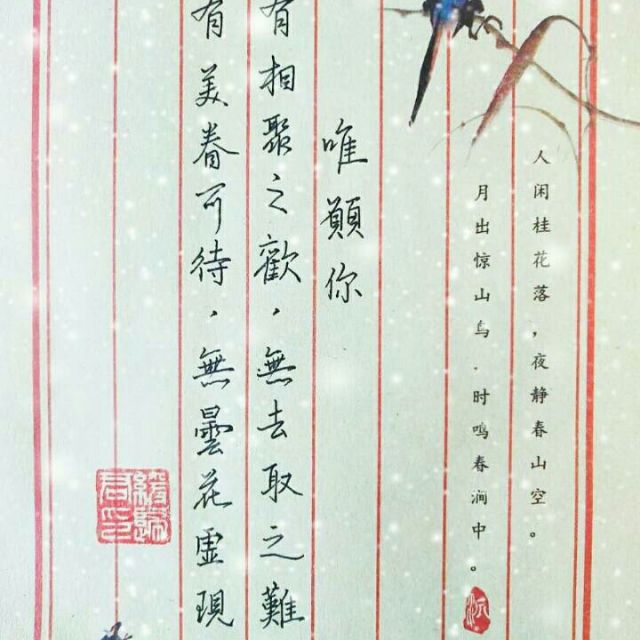 人闲桂花落，夜静春山空。
月出惊山鸟．时鸣春涧中。
唯願你
有相聚之歡，無去取之難
有美眷可待，無曇花虛現